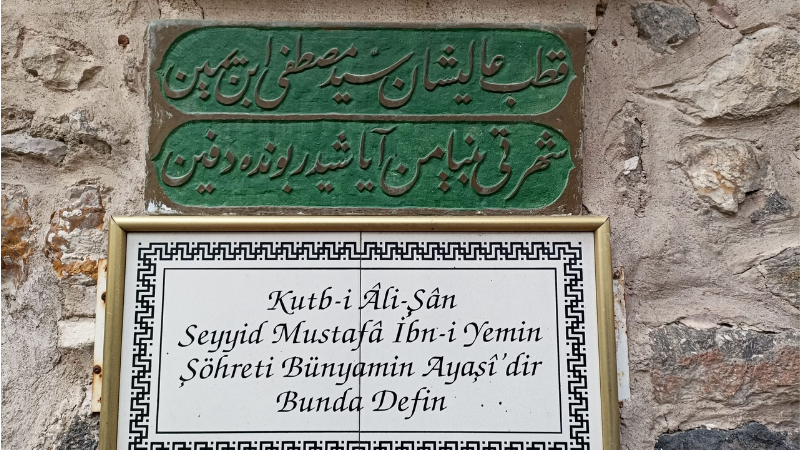 قطب عاليشان سيد مصطفى ابن يمين
شهرتى بنيامن آياشيدر بونده دفين
Kutb-i Âli-Şân
Seyyid Mustafâ İbn-i Yemin
Şöhreti Bünyamin Ayaşî'dir
Bunda Defin